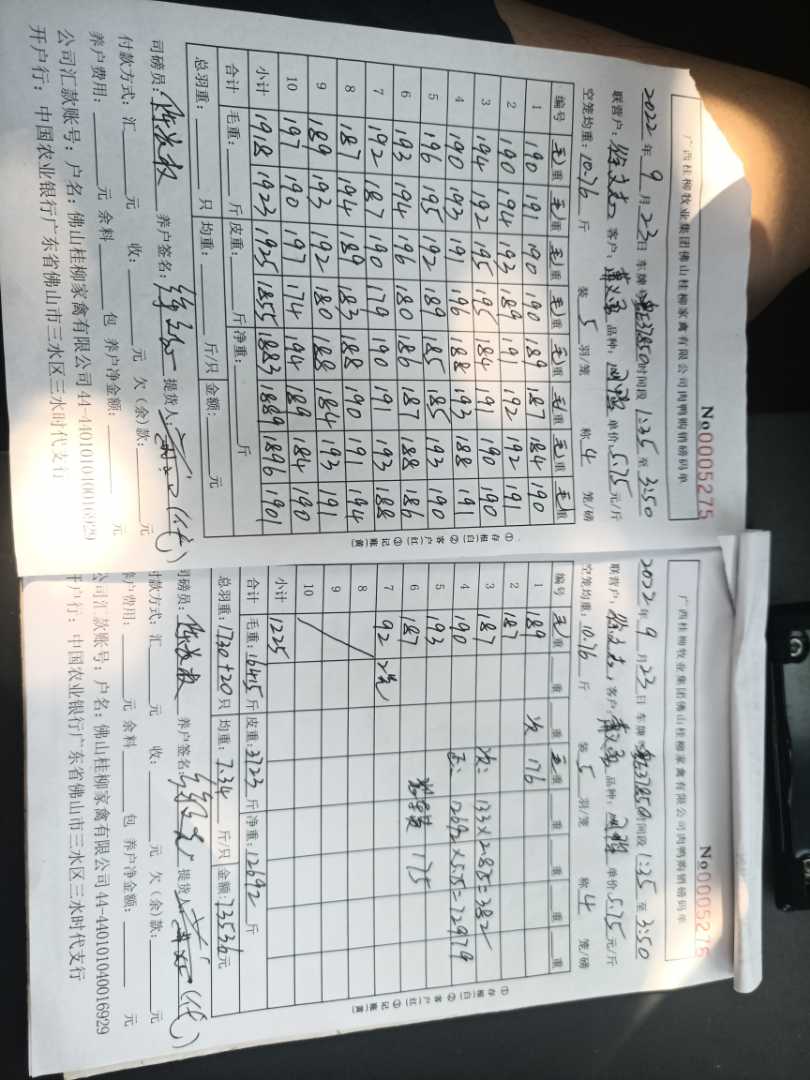 广西桂柳牧业集团佛山桂柳家禽有限公司肉鸭购销磅码单
No 0005275
2022 年 9 月 23 日 车牌: 37850 时间段 1:35 至 3:50
联营户: 客户: 品种: 单价 5.75 元/斤
空笼均重: 10.76 斤 装 5 羽/笼 称 4 笼/磅
编号 毛重 毛重 毛重 毛重 毛重 毛重 毛重 毛重
1 190 191 190 190 189 187 184 190
2 190 194 193 189 191 192 192 191
3 194 192 195 195 184 191 190 190
4 190 193 191 196 188 193 188 191
5 196 195 192 189 185 185 193 190
6 193 194 196 180 186 187 188 186
7 192 187 190 179 190 191 193 188
8 187 194 189 183 188 190 191 194
9 189 193 192 180 188 184 193 191
10 197 190 197 174 194 189 184 190
小计 1918 1923 1925 1855 1883 1889 1896 1901
合计 毛重: 斤 皮重: 斤 净重: 斤
总羽重: 只 均重: 斤/只 金额: 元
①存根(白) ②客户(红) ③记账(黄)
司磅员: 养户签名: 提货人: (代)
付款方式: 汇 元 收: 元 欠(余)款: 元
养户费用: 元 余料 包 养户净金额: 元
公司汇款账号: 户名: 佛山桂柳家禽有限公司 44-440101040016929
开户行: 中国农业银行广东省佛山市三水区三水时代支行
广西桂柳牧业集团佛山桂柳家禽有限公司肉鸭购销磅码单
No 0005276
2022 年 9 月 23 日 车牌: 37850 时间段 1:35 至 3:50
联营户: 客户: 品种: 单价 5.75 元/斤
空笼均重: 10.76 斤 装 5 羽/笼 称 4 笼/磅
编号 毛重 重 重 毛重 重 重 重 重
1 189 次 176
2 187
3 187 次: 133×2.875=382
4 190 正: 12692×5.75=72979
5 193
6 187 175
7 92 2笼
8
9
10
小计 1225
合计 毛重: 16415 斤 皮重: 3723 斤 净重: 12692 斤
总羽重: 1730+20 只 均重: 7.34 斤/只 金额: 73536 元
①存根(白) ②客户(红) ③记账(黄)
司磅员: 养户签名: 提货人: (代)
付款方式: 汇 元 收: 元 欠(余)款: 元
养户费用: 元 余料 包 养户净金额: 元
公司汇款账号: 户名: 佛山桂柳家禽有限公司 44-440101040016929
开户行: 中国农业银行广东省佛山市三水区三水时代支行